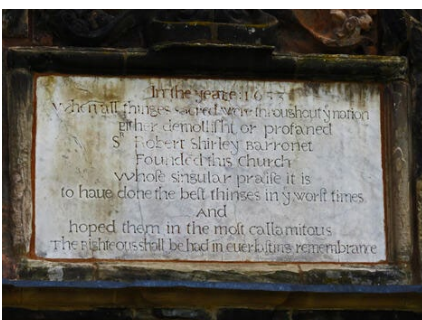 In the yeare: 1653
when all thinges sacred were throughout yͤ nation
Either demollisht or profaned
Sʳ Robert Shirley Barronet
Founded this Church
Whose singular praise it is
to haue done the best thinges in yͤ worst times
And
hoped them in the most callamitous
The Righteous shall be had in euerlasting remembrance